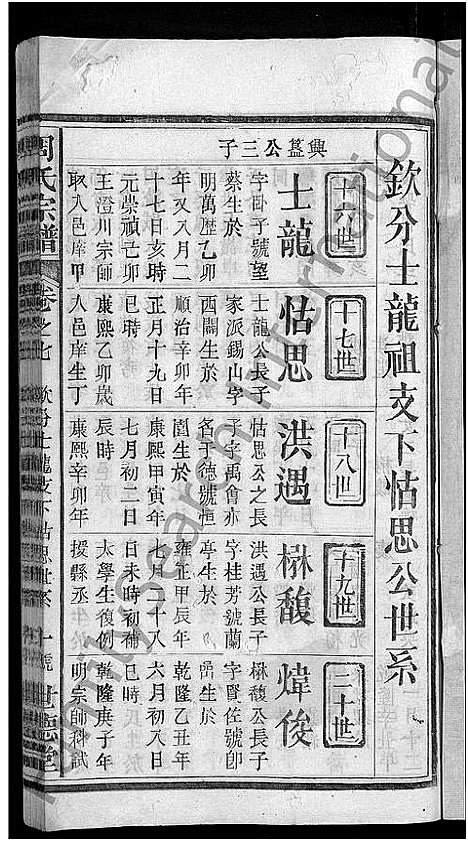 欽分士龍祖支下怙思公世系
十六世
十七世
十八世
十九世
二十世
興簋公三子
士龍
字臥子號望
蔡生於
明萬歷乙卯
年又八月二
十七日亥時
元崇禎己卯
王澄川宗師
取入邑庠甲
怙思
士龍公長子
家派錫山字
西關生於
順治辛卯年
正月十九日
巳時
康熙乙卯歲
入邑庠生丁
洪遇
怙思公之長
子字禹會亦
名于德號恒
圃生於
康熙甲寅年
七月初二日
辰時
康熙辛卯年
楙馥
洪遇公長子
字桂芳號蘭
亭生於
雍正甲辰年
八月二十八
日未時初補
太學生復例
援縣丞年於
煒俊
楙馥公長子
字賢佐號卽
喦生於
乾隆乙丑年
六月初八日
巳時
乾隆庚子年
明宗師科試
周氏宗譜
卷之七
欽分士龍支下怙思世系
世德堂